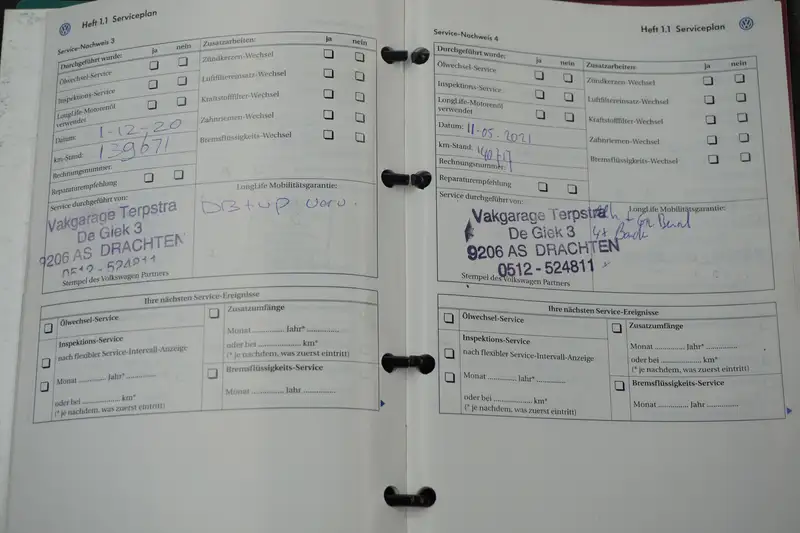 Heft 1.1 Serviceplan
Service-Nachweis 3
Durchgeführt wurde: ja nein
Ölwechsel-Service
Inspektions-Service
LongLife-Motorenöl
verwendet
Datum: 1-12-20
km-Stand: 139671
Rechnungsnummer:
Reparaturempfehlung
Zusatzarbeiten: ja nein
Zündkerzen-Wechsel
Luftfiltereinsatz-Wechsel
Kraftstofffilter-Wechsel
Zahnriemen-Wechsel
Bremsflüssigkeits-Wechsel
Service durchgeführt von:
Vakgarage Terpstra
De Giek 3
9206 AS DRACHTEN
0512-524811
Stempel des Volkswagen Partners
LongLife Mobilitätsgarantie:
Ihre nächsten Service-Ereignisse
Ölwechsel-Service
Inspektions-Service
nach flexibler Service-Intervall-Anzeige
Monat ............ Jahr* ............
oder bei .................. km*
(* je nachdem, was zuerst eintritt)
Zusatzumfänge
Monat ............ Jahr* ............
oder bei .................. km*
(* je nachdem, was zuerst eintritt)
Bremsflüssigkeits-Service
Monat ............ Jahr ............
Heft 1.1 Serviceplan
Service-Nachweis 4
Durchgeführt wurde: ja nein
Ölwechsel-Service
Inspektions-Service
LongLife-Motorenöl
verwendet
Datum: 11-05-2021
km-Stand:
Rechnungsnummer:
Reparaturempfehlung
Zusatzarbeiten: ja nein
Zündkerzen-Wechsel
Luftfiltereinsatz-Wechsel
Kraftstofffilter-Wechsel
Zahnriemen-Wechsel
Bremsflüssigkeits-Wechsel
Service durchgeführt von:
Vakgarage Terpstra
De Giek 3
9206 AS DRACHTEN
0512 - 524811
Stempel des Volkswagen Partners
LongLife Mobilitätsgarantie:
Ihre nächsten Service-Ereignisse
Ölwechsel-Service
Inspektions-Service
nach flexibler Service-Intervall-Anzeige
Monat ............ Jahr* ............
oder bei .................. km*
(* je nachdem, was zuerst eintritt)
Zusatzumfänge
Monat ............ Jahr* ............
oder bei .................. km*
(* je nachdem, was zuerst eintritt)
Bremsflüssigkeits-Service
Monat ............ Jahr ............